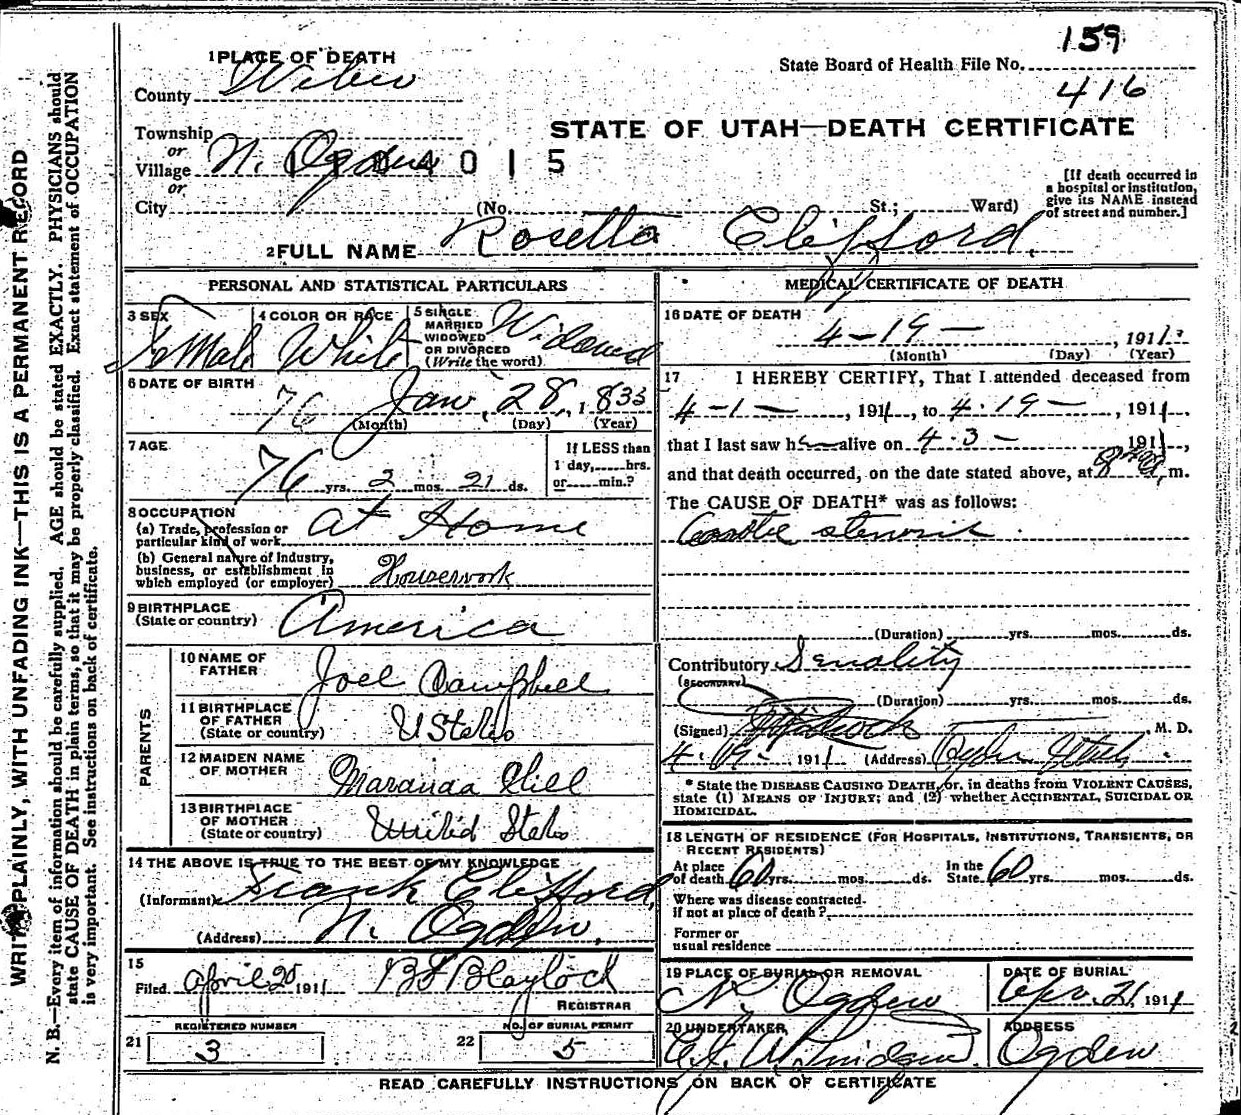 159
State Board of Health File No.
416
1 PLACE OF DEATH
County Weber
STATE OF UTAH—DEATH CERTIFICATE
Township
or
Village N. Ogden
4015
or
City (No. St.; Ward)
[If death occurred in
a hospital or institution,
give its NAME instead
of street and number.]
2 FULL NAME Rosetta Clifford.
PERSONAL AND STATISTICAL PARTICULARS
3 SEX Female
4 COLOR OR RACE White
5 SINGLE
MARRIED
WIDOWED
OR DIVORCED
(Write the word) Widowed
6 DATE OF BIRTH
76 Jan. 28, 1835
(Month) (Day) (Year)
7 AGE
76 yrs. 2 mos. 21 ds.
If LESS than
1 day, hrs.
or min.?
8 OCCUPATION
(a) Trade, profession or
particular kind of work at Home
(b) General nature of industry,
business, or establishment in
which employed (or employer) Housework
9 BIRTHPLACE
(State or country) America
PARENTS
10 NAME OF
FATHER Joel Campbell
11 BIRTHPLACE
OF FATHER
(State or country) U States
12 MAIDEN NAME
OF MOTHER Maranda Hill
13 BIRTHPLACE
OF MOTHER
(State or country) United States
14 THE ABOVE IS TRUE TO THE BEST OF MY KNOWLEDGE
(Informant) Frank Clifford,
(Address) N. Ogden.
15
Filed April 20 1911 Blaylock
REGISTRAR
REGISTERED NUMBER
21 3
NO. OF BURIAL PERMIT
22 5
MEDICAL CERTIFICATE OF DEATH
16 DATE OF DEATH
4-19- , 1911
(Month) (Day) (Year)
17 I HEREBY CERTIFY, That I attended deceased from
4-1- , 1911, to 4-19- , 1911.
that I last saw h alive on 4-3- 1911,
and that death occurred, on the date stated above, at 8 m.
The CAUSE OF DEATH* was as follows:
(Duration) yrs. mos. ds.
Contributory Senality
(SECONDARY)
(Duration) yrs. mos. ds.
(Signed) M. D.
4-19- 1911 (Address) Ogden Utah
* State the DISEASE CAUSING DEATH, or, in deaths from VIOLENT CAUSES,
state (1) MEANS OF INJURY; and (2) whether ACCIDENTAL, SUICIDAL OR
HOMICIDAL.
18 LENGTH OF RESIDENCE (FOR HOSPITALS, INSTITUTIONS, TRANSIENTS, OR
RECENT RESIDENTS)
At place
of death 60 yrs. mos. ds.
In the
State 60 yrs. mos. ds.
Where was disease contracted
if not at place of death?
Former or
usual residence
19 PLACE OF BURIAL OR REMOVAL
N. Ogden
DATE OF BURIAL
Apr. 21, 1911
20 UNDERTAKER
ADDRESS
Ogden
READ CAREFULLY INSTRUCTIONS ON BACK OF CERTIFICATE
WRITE PLAINLY, WITH UNFADING INK—THIS IS A PERMANENT RECORD
N. B.—Every item of information should be carefully supplied. AGE should be stated EXACTLY. PHYSICIANS should
state CAUSE OF DEATH in plain terms, so that it may be properly classified. Exact statement of OCCUPATION
is very important. See instructions on back of certificate.